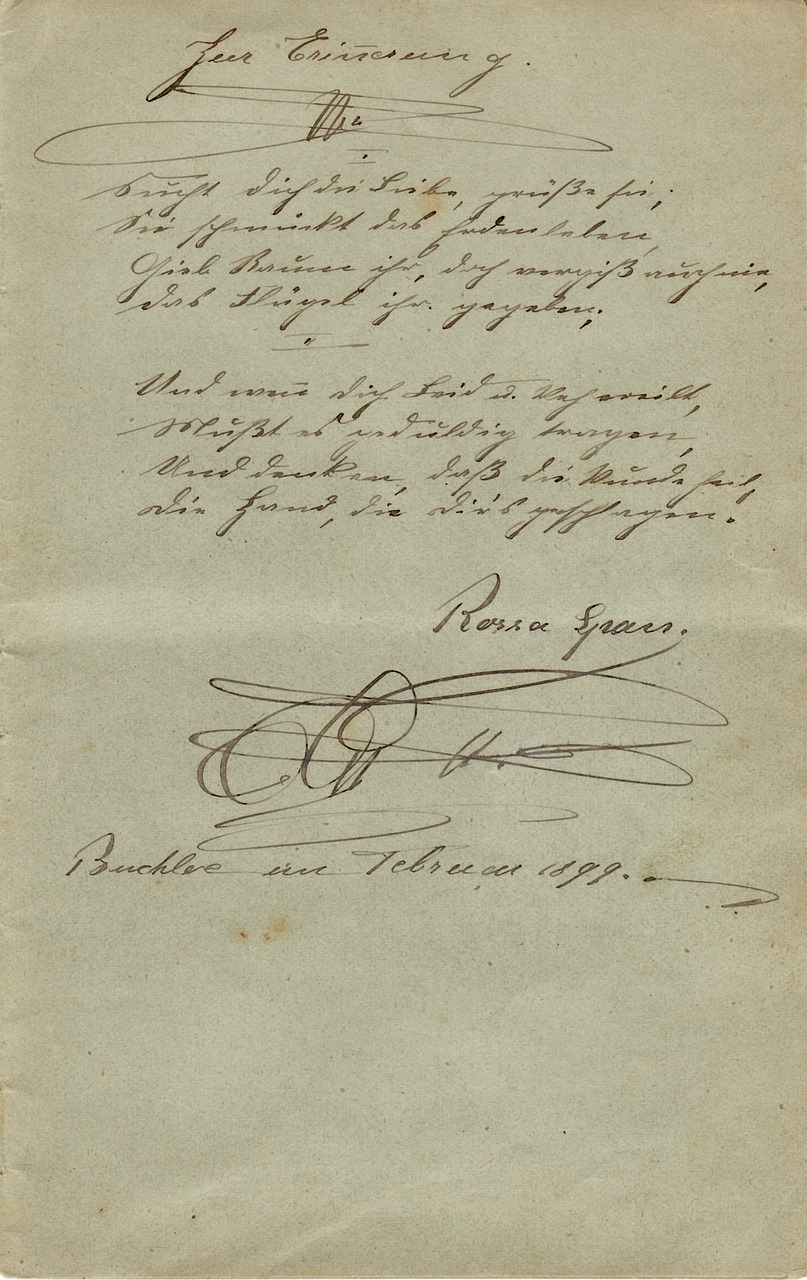 Zur Erinerung.
Sucht dich die Liebe, grüße sie;
Sie schmückt das Erdenleben,
Gieb Raum ihr, doch vergiß auch nie,
das Flügel ihr gegeben;
Und wen̄ dich Leid u. Weh ereilt,
Mußt es geduldig tragen,
Und denken, daß die Wunde heilt,
Die Hand, die dir's geschlagen.
Rossa
im Februar 1899.